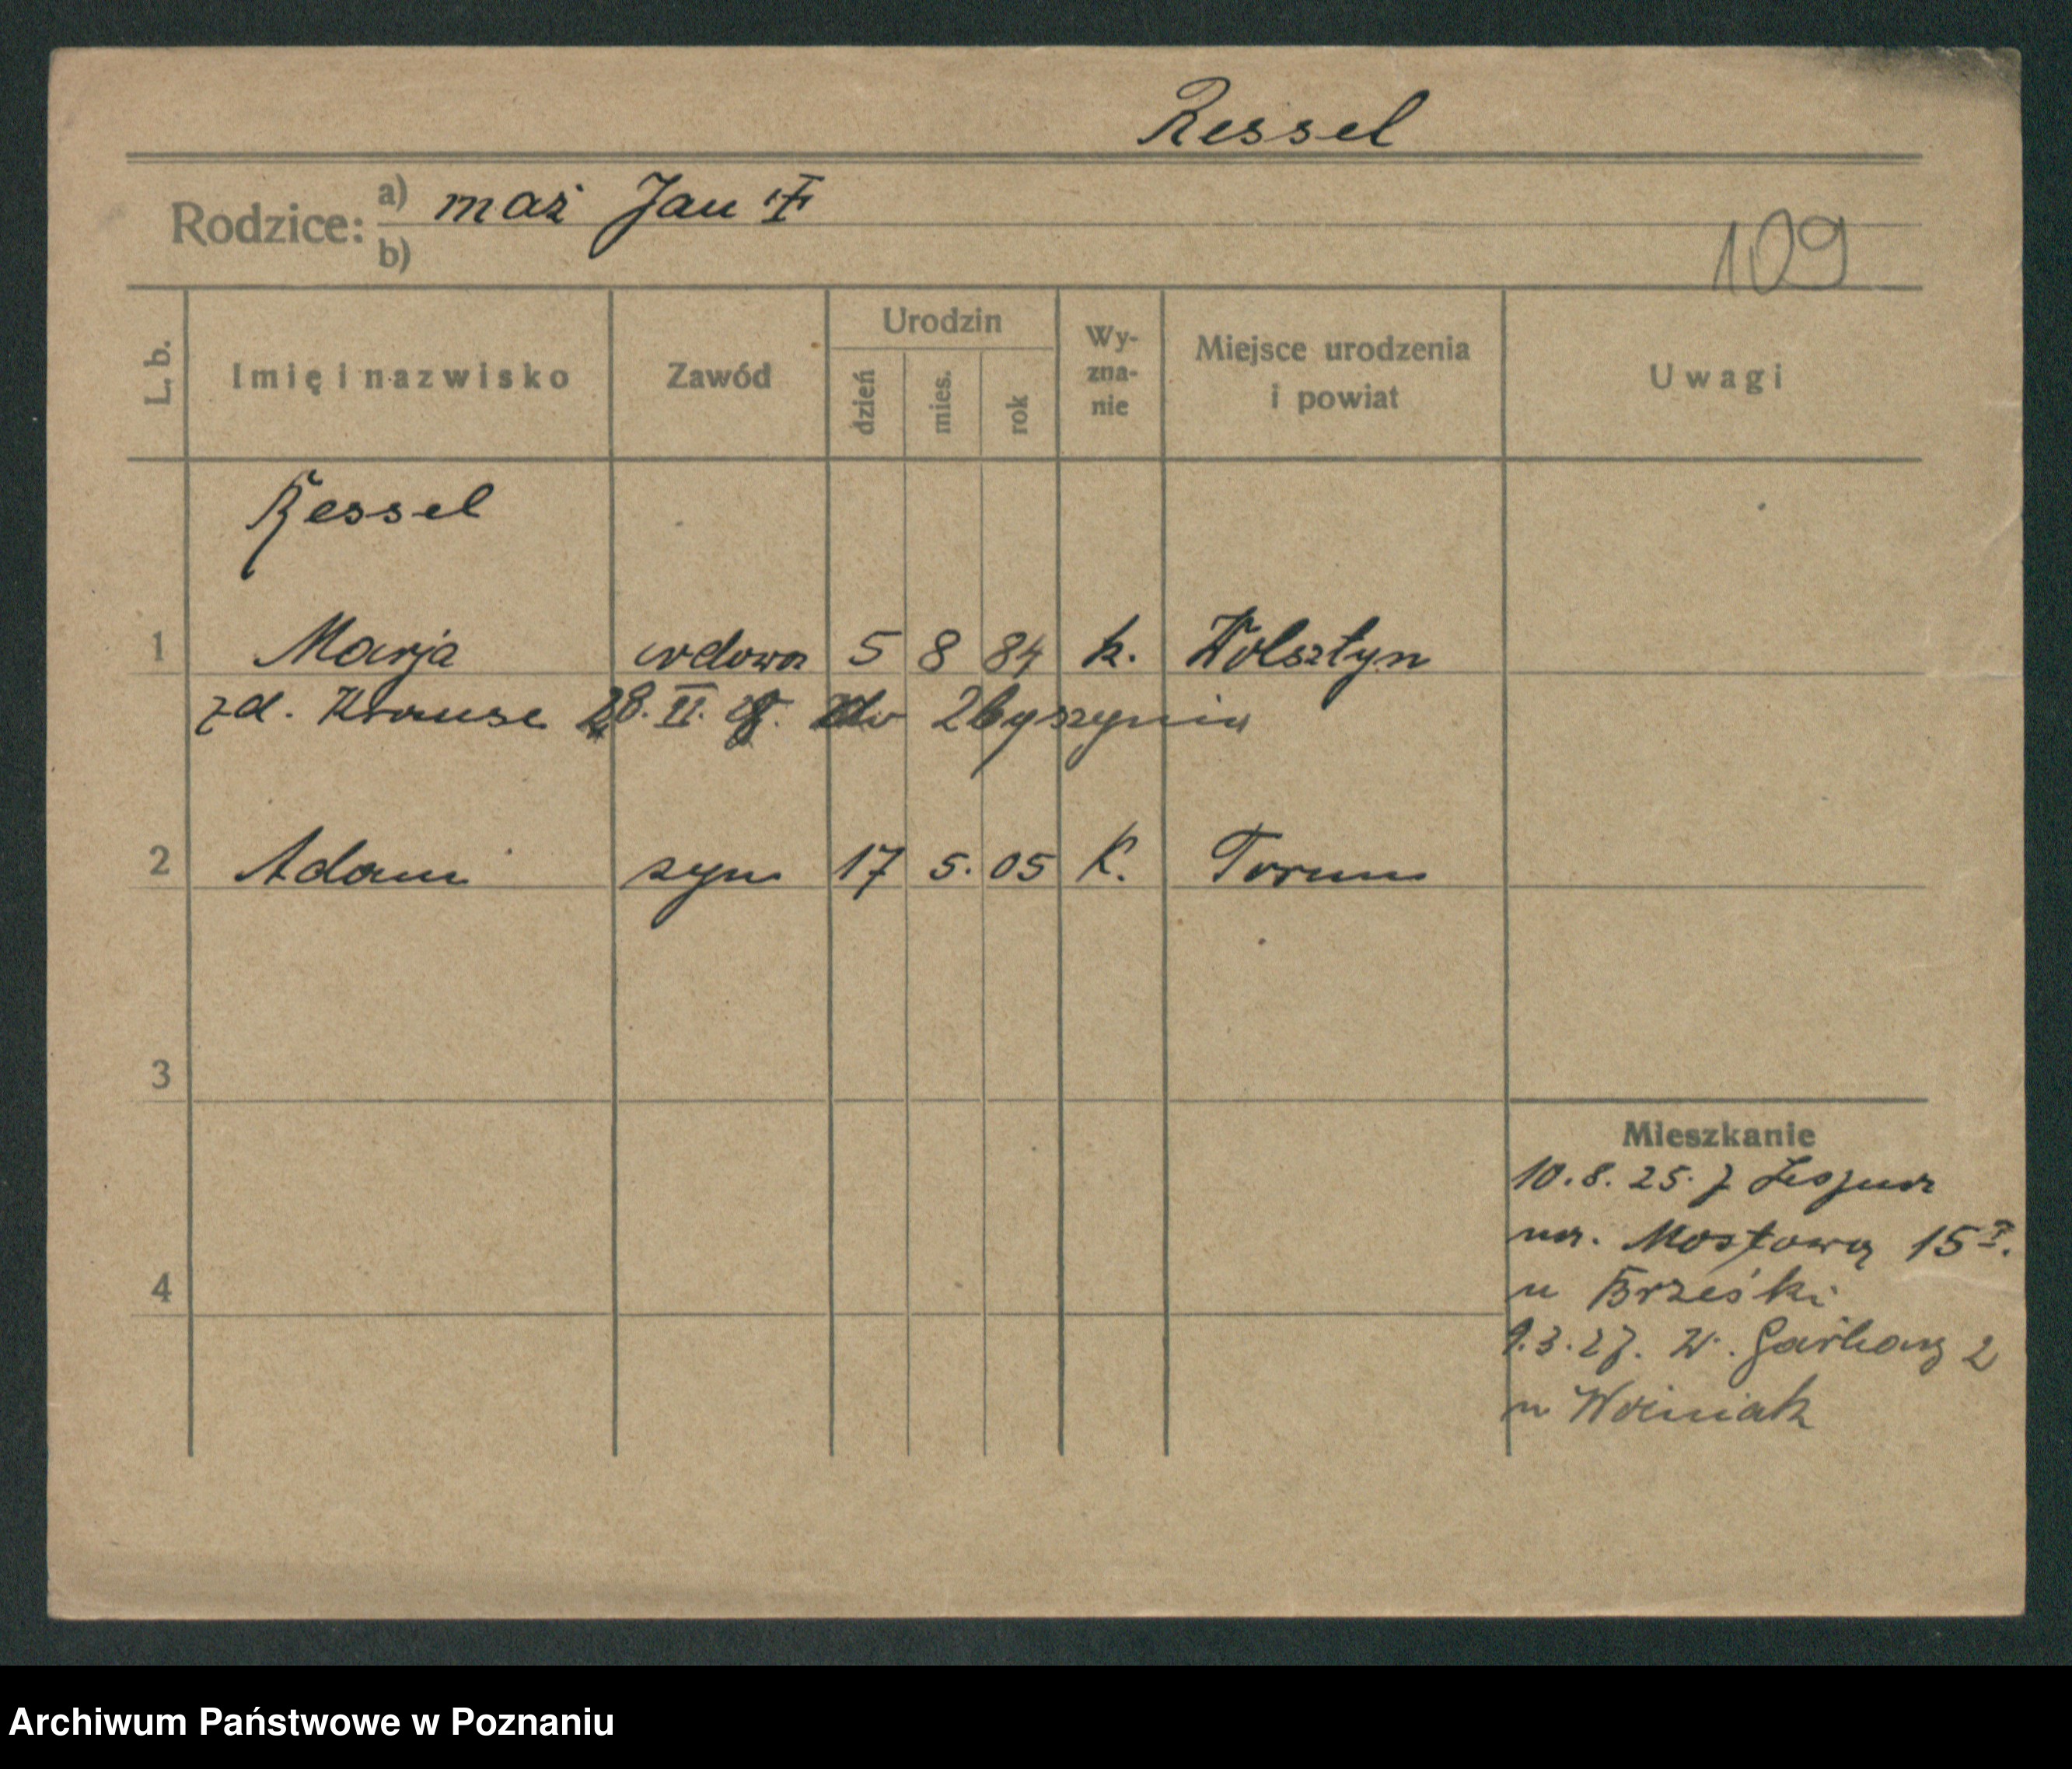 Ressel
Rodzice: a) maż Jan
b)
109
L. b. Imię i nazwisko Zawód Urodzin dzień mies. rok Wy-zna-nie Miejsce urodzenia i powiat Uwagi
Ressel
1 Marja wdowa 5 8 84 k. Wolsztyn
zd. Krause 28. II. do Zbyszynia
2 Adam syn 17 5. 05 K. Toruń
3
4
Mieszkanie
10.8.25. z
na. Mostową 15
u Brzeski
9.3.27. W. Garbary 2
u Woźniak
Archiwum Państwowe w Poznaniu